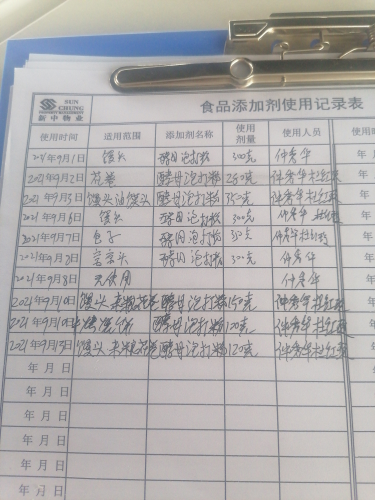 SUN CHUNG
新中物业
食品添加剂使用记录表
使用时间 适用范围 添加剂名称 使用剂量 使用人员 使用时
2021年9月1日 馒头 酵母泡打粉 300克 仲秀华
2021年9月2日 花卷 酵母泡打粉 280克 仲秀华杜红燕
2021年9月5日 馒头油馍头 酵母泡打粉 350克 仲秀华杜红燕
2021年9月6日 馒头 酵母泡打粉 300克 仲秀华
2021年9月7日 包子 酵母泡打粉 仲秀华杜红燕
2021年9月 日 酵母泡打粉 300克 仲秀华
2021年9月8日 无使用 仲秀华
2021年9月10日 馒头 杂粮花卷 酵母泡打粉 150克 仲秀华杜红燕
2021年9月 日 酵母泡打粉 100克 仲秀华杜红燕
2021年9月15日 馒头 杂粮花卷 酵母泡打粉 120克 仲秀华杜红燕
年 月 日
年 月 日
年 月 日
年 月 日
年 月 日
年 月 日